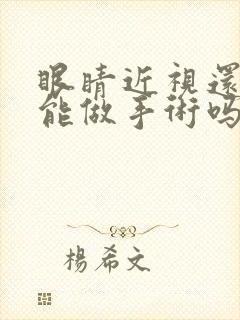 眼睛近視還
能做手術吗
楊希文